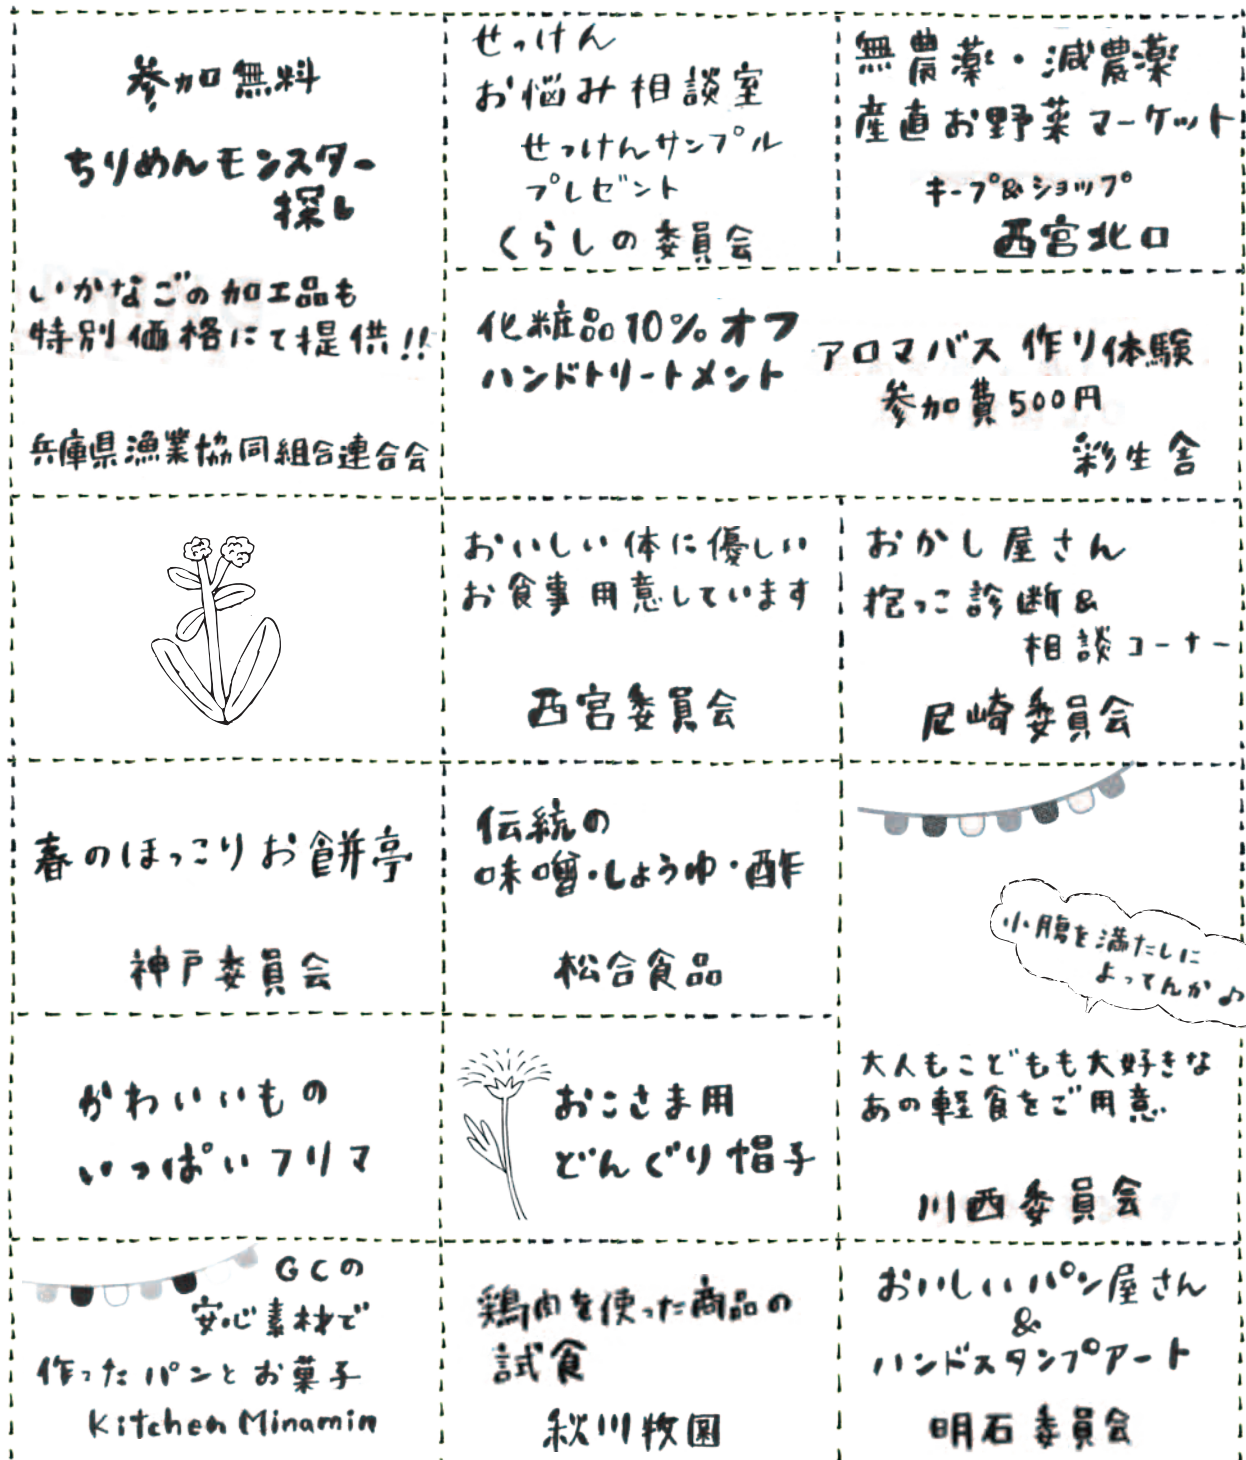 参加無料
ちりめんモンスター
探し
いかなごの加工品も
特別価格にて提供!!
兵庫県漁業協同組合連合会
せっけん
お悩み相談室
せっけんサンプル
プレゼント
くらしの委員会
無農薬・減農薬
産直お野菜マーケット
キープ&ショップ
西宮北口
化粧品10%オフ
ハンドトリートメント
アロマバス作り体験
参加費500円
彩生舎
おいしい体に優しい
お食事用意しています
西宮委員会
おかし屋さん
抱っこ診断&
相談コーナー
尼崎委員会
春のほっこりお餅亭
神戸委員会
伝統の
味噌・しょうゆ・酢
松合食品
小腹を満たしに
よってんか♪
大人もこどもも大好きな
あの軽食をご用意
川西委員会
かわいいもの
いっぱいフリマ
おこさま用
どんぐり帽子
GCの
安心素材で
作ったパンとお菓子
Kitchen Minamin
鶏肉を使った商品の
試食
秋川牧園
おいしいパン屋さん
&
ハンドスタンプアート
明石委員会